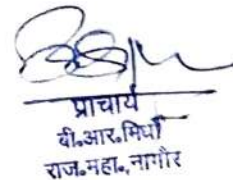 प्राचार्य
बी॰आर॰मिर्धा
राज॰महा॰,नागौर